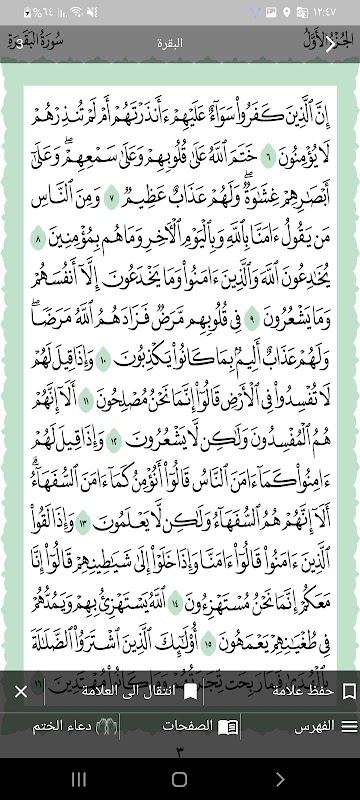 ١٢:٤٧
٪٦٤
الجُزْءُ الأَوَّلُ
البقرة
سُورَةُ البَقَرَةِ
إِنَّ ٱلَّذِينَ كَفَرُواْ سَوَآءٌ عَلَيْهِمْ ءَأَنذَرْتَهُمْ أَمْ لَمْ تُنذِرْهُمْ
لَا يُؤْمِنُونَ ٦ خَتَمَ ٱللَّهُ عَلَىٰ قُلُوبِهِمْ وَعَلَىٰ سَمْعِهِمْۖ وَعَلَىٰٓ
أَبْصَٰرِهِمْ غِشَٰوَةٌۖ وَلَهُمْ عَذَابٌ عَظِيمٌ ٧ وَمِنَ ٱلنَّاسِ
مَن يَقُولُ ءَامَنَّا بِٱللَّهِ وَبِٱلْيَوْمِ ٱلْأٓخِرِ وَمَا هُم بِمُؤْمِنِينَ ٨
يُخَٰدِعُونَ ٱللَّهَ وَٱلَّذِينَ ءَامَنُواْ وَمَا يَخْدَعُونَ إِلَّآ أَنفُسَهُمْ
وَمَا يَشْعُرُونَ ٩ فِي قُلُوبِهِم مَّرَضٌ فَزَادَهُمُ ٱللَّهُ مَرَضًاۖ
وَلَهُمْ عَذَابٌ أَلِيمٌۢ بِمَا كَانُواْ يَكْذِبُونَ ١٠ وَإِذَا قِيلَ لَهُمْ
لَا تُفْسِدُواْ فِي ٱلْأَرْضِ قَالُوٓاْ إِنَّمَا نَحْنُ مُصْلِحُونَ ١١ أَلَآ إِنَّهُمْ
هُمُ ٱلْمُفْسِدُونَ وَلَٰكِن لَّا يَشْعُرُونَ ١٢ وَإِذَا قِيلَ لَهُمْ
ءَامِنُواْ كَمَآ ءَامَنَ ٱلنَّاسُ قَالُوٓاْ أَنُؤْمِنُ كَمَآ ءَامَنَ ٱلسُّفَهَآءُۗ
أَلَآ إِنَّهُمْ هُمُ ٱلسُّفَهَآءُ وَلَٰكِن لَّا يَعْلَمُونَ ١٣ وَإِذَا لَقُواْ
ٱلَّذِينَ ءَامَنُواْ قَالُوٓاْ ءَامَنَّا وَإِذَا خَلَوْاْ إِلَىٰ شَيَٰطِينِهِمْ قَالُوٓاْ إِنَّا
مَعَكُمْ إِنَّمَا نَحْنُ مُسْتَهْزِءُونَ ١٤ ٱللَّهُ يَسْتَهْزِئُ بِهِمْ وَيَمُدُّهُمْ
فِي طُغْيَٰنِهِمْ يَعْمَهُونَ ١٥ أُوْلَٰٓئِكَ ٱلَّذِينَ ٱشْتَرَوُاْ ٱلضَّلَٰلَةَ
بِٱلْهُدَىٰ فَمَا رَبِحَت تِّجَٰرَتُهُمْ وَمَا كَانُواْ مُهْتَدِينَ ١٦
حفظ علامة انتقال الى العلامة
الفهرس الصفحات دعاء الختم
٣